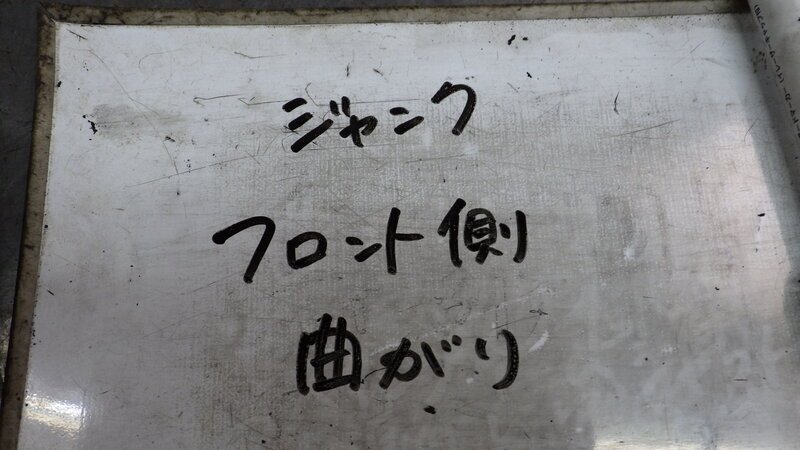 ジャンク
フロント側
曲がり